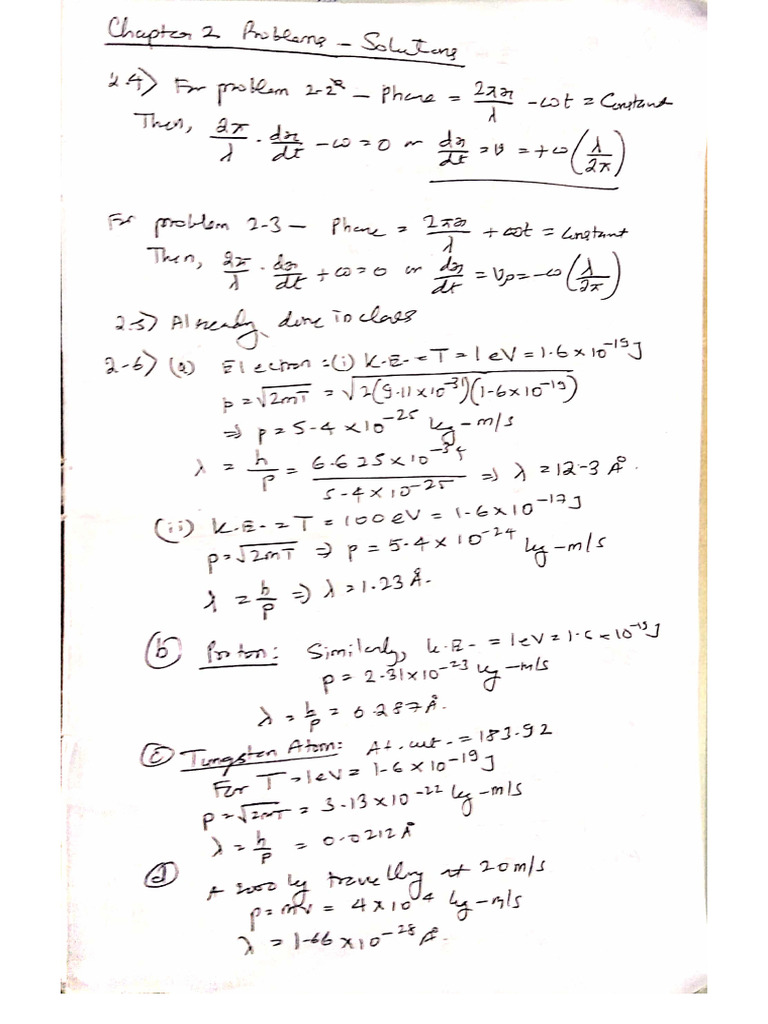 Chapter 2 Problems - Solutions
2.4) For problem 2-2 - Phase = 2πx/λ - ωt = Constant
Then, 2π/λ · dx/dt - ω = 0 or dx/dt = v = +ω(λ/2π)
For problem 2-3 - Phase = 2πx/λ + ωt = Constant
Then, 2π/λ · dx/dt + ω = 0 or dx/dt = Vp = -ω(λ/2π)
2.5) Already done in class
2-6) (a) Electron :(i) K.E. = T = 1eV = 1.6 × 10^-19 J
p = √2mT = √2(9.11 × 10^-31)(1.6 × 10^-19)
⇒ p = 5.4 × 10^-25 kg-m/s
λ = h/p = 6.625 × 10^-34 / 5.4 × 10^-25 ⇒ λ = 12.3 Å.
(ii) K.E. = T = 100eV = 1.6 × 10^-17 J
p = √2mT ⇒ p = 5.4 × 10^-24 kg-m/s
λ = h/p ⇒ λ = 1.23 Å.
(b) Proton: Similarly, K.E. = 1eV = 1.6 × 10^-19 J
p = 2.31 × 10^-23 kg-m/s
λ = h/p = 0.287 Å.
(c) Tungsten Atom: At. wt. = 183.92
For T = 1eV = 1.6 × 10^-19 J
p = √2mT = 3.13 × 10^-22 kg-m/s
λ = h/p = 0.0212 Å
(d) A 2000 kg travelling at 20 m/s
p = mv = 4 × 10^4 kg-m/s
λ = 1.66 × 10^-28 Å.